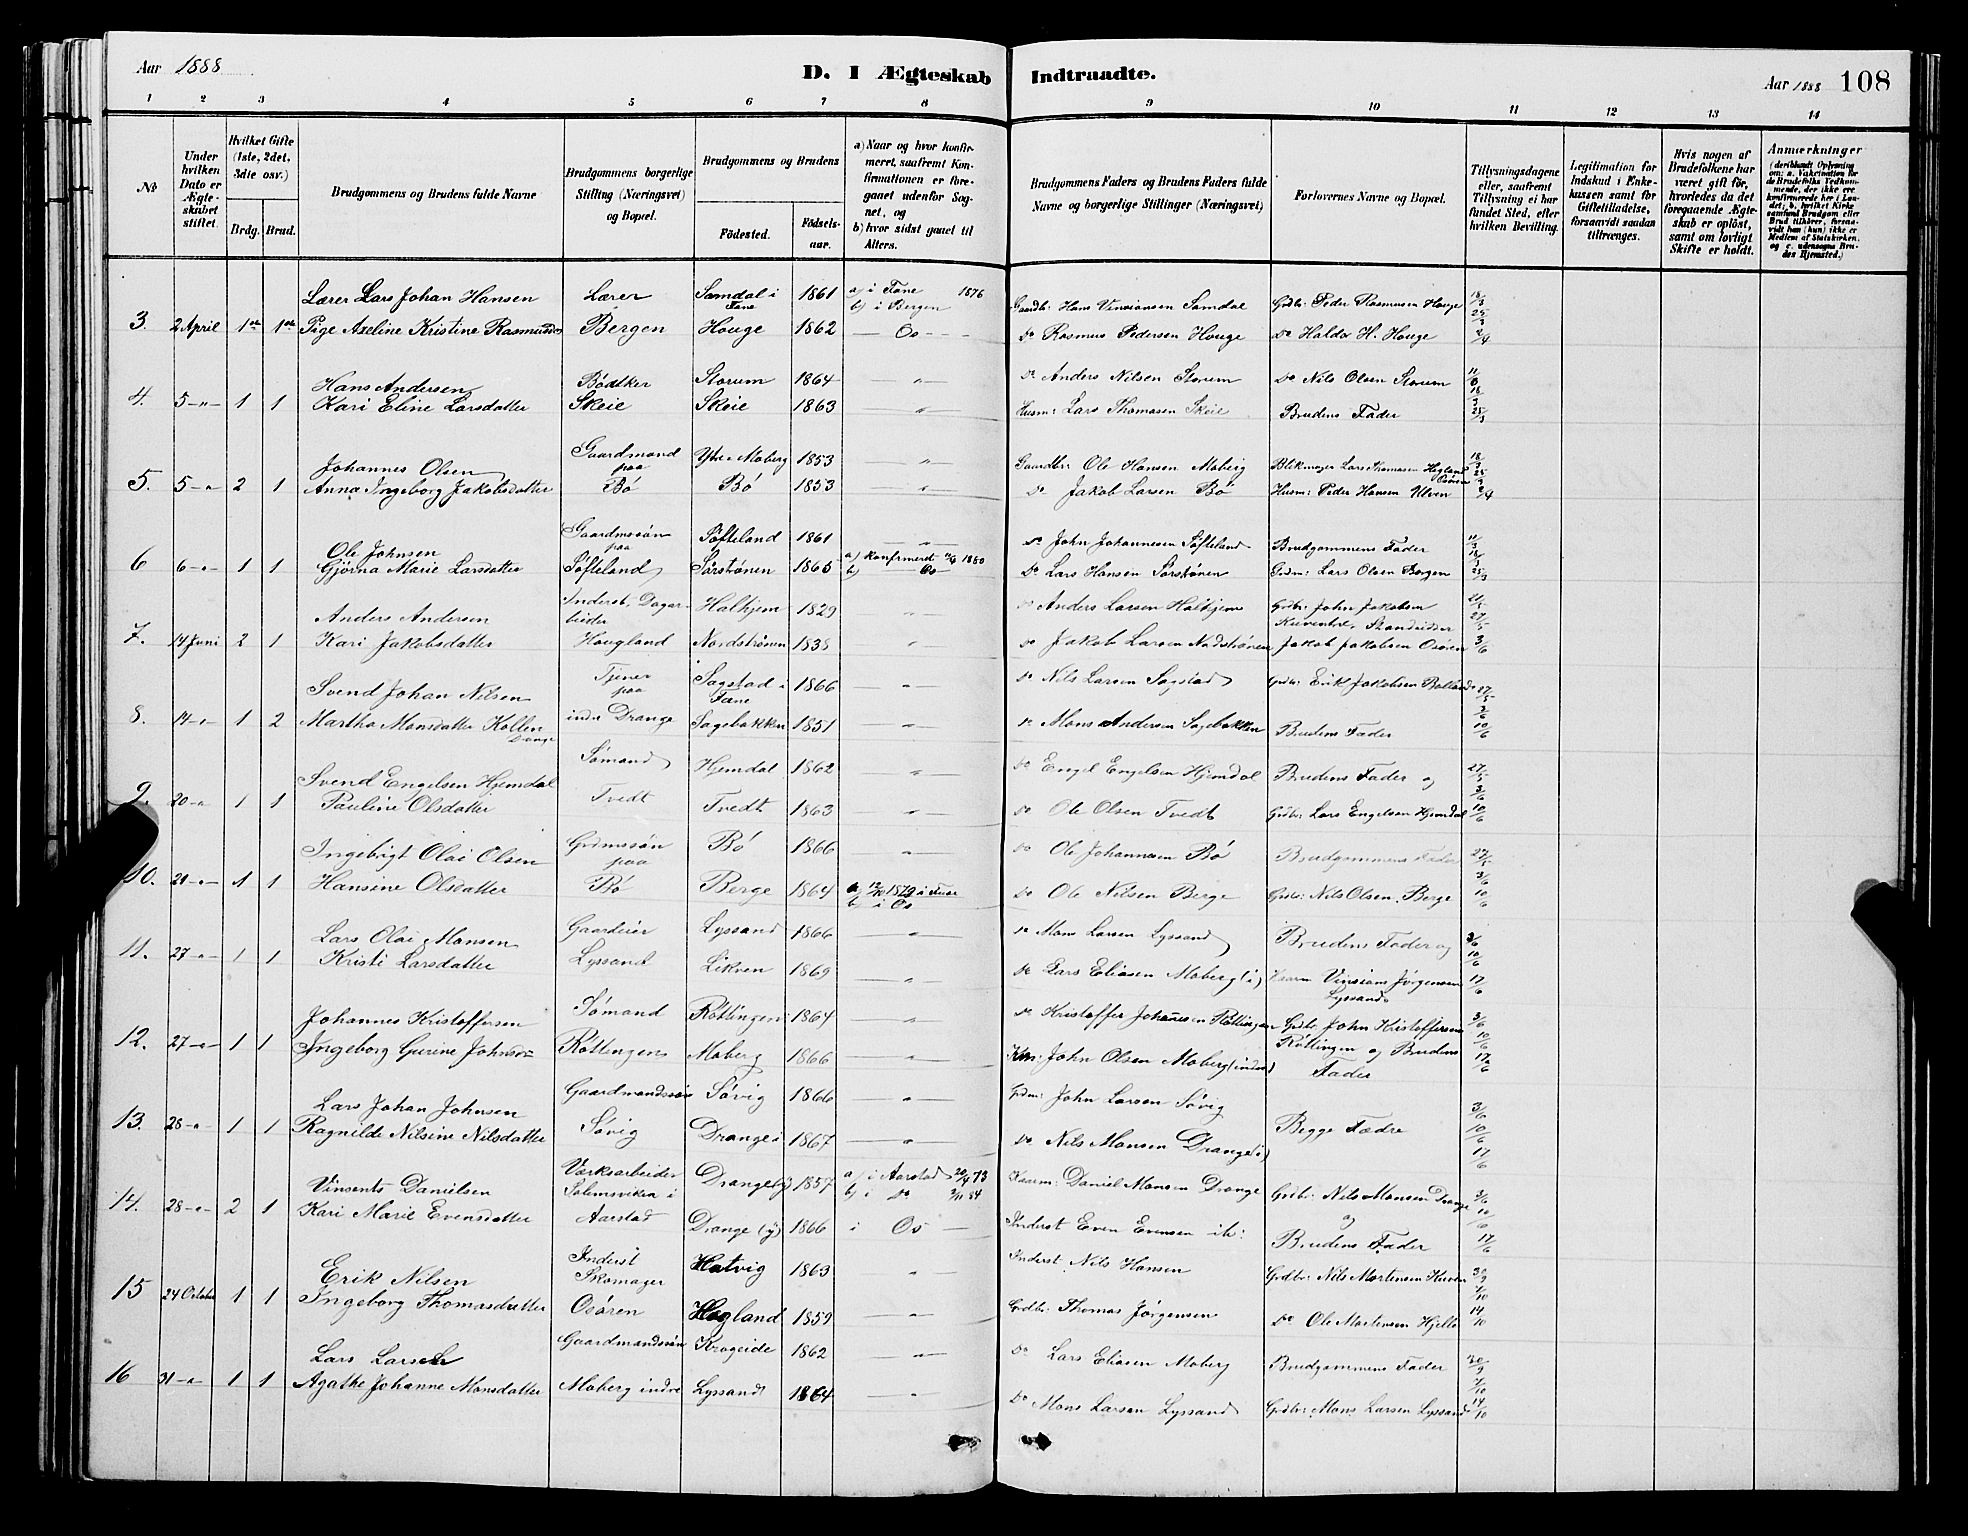 Aar 1888
D. I Ægteskab Indtraadte.
Aar 1888 108
1 2 3 4 5 6 7 8 9 10 11 12 13 14
№
Under hvilken Dato er Ægteskabet stiftet.
Hvilket Gifte (1ste, 2det, 3die osv.)
Brdg. Brud.
Brudgommens og Brudens fulde Navne
Brudgommens borgerlige Stilling (Næringsvei) og Bopæl.
Brudgommens og Brudens
Fødested. Fødselsaar.
a) Naar og hvor konfirmeret, saafremt Konfirmationen er foregaaet udenfor Sognet, og
b) hvor sidst gaaet til Alters.
Brudgommens Faders og Brudens Faders fulde Navne og borgerlige Stillinger (Næringsvei)
Forlovernes Navne og Bopæl.
Tillysningsdagene eller, saafremt Tillysning ei har fundet Sted, efter hvilken Bevilling.
Legitimation for Indskud i Enkekassen samt for Giftetilladelse, forsaavidt saadan tiltrænges.
Hvis nogen af Brudefolkene har været gift før, hvorledes da det foregaaende Ægteskab er opløst, samt om lovligt Skifte er holdt.
Anmærkninger (deriblandt Oplysning om: a. Vakcination for de Brudefolks Vedkommende, der ikke ere konfirmerede her i Landet; b. hvilket Kirkesamfund Brudgom eller Brud tilhører, forsaavidt han (hun) ikke er Medlem af Statskirken, og c. udensogns Brudes Hjemsted.)
Lærer Lars Johan Hansen Lærer Samdal i Fane 1861 a) i Fane 1876 b) i Bergen Gaardbr: Hans Vinsiansen Samdal Grdbr: Peder Rasmussen Houge 18/3 25/3
3. 2 April 1ste 1ste Pige Axeline Kristine Rasmusd Bergen Houge 1862 — Os — Do Rasmus Pedersen Houge Do Haldor H. Houge 2/4
Hans Andersen Bødtker Storum 1864 — " — Do Anders Nilsen Storum Do Nils Olsen Storum 11/3 18/3
4. 5 — " — 1 1 Kari Eline Larsdatter Skeie Skeie 1863 — " — Husm: Lars Thomasen Skeie Brudens Fader 25/3
Johannes Olsen Gaardmand paa Ytre Moberg 1853 — " — Gaardbr: Ole Hansen Moberg Lars Thomasen Hegland Osøren 18/3 25/3
5. 5 — " — 2 1 Anna Ingeborg Jakobsdatter Bö Bö 1853 — " — Do Jakob Larsen Bö Husm: Peder Hansen Ulven 2/4
Ole Johnsen Gaardmssön paa Söfteland 1861 — " — Do John Johannesen Söfteland Brudgommens Fader 11/3 18/3
6 6 — " — 1 1 Gjörna Marie Larsdatter Söfteland Sörströnen 1865 a) Konfirmeret 1880 b) Os Do Lars Hansen Sörströnen Grdm: Lars Olsen Borgen 25/3
Anders Andersen Inderst, Dagarbeider Halhjem 1829 — " — Do Anders Larsen Halhjem Grdbr: John Jakobsen 27/5
7. 14 Juni 2 1 Kari Jakobsdatter Hougland Nordströnen 1838 — " — Do Jakob Larsen Nordströnen Jakob Jakobsen Osören 3/6
Svend Johan Nilsen Tjener paa Sagstad i Fane 1866 — " — Do Nils Larsen Sagstad Grdbr: Erik Jakobsen 27/5 3/6
8. 14 — " — 1 2 Martha Monsdatter Kollen Drange indre Drange Sagebakken 1851 — " — Do Mons Andersen Sagebakken Brudens Fader 10/6
Svend Engelsen Hjemdal Sømand Hjemdal 1862 — " — Do Engel Engelsen Hjemdal Brudens Fader og 27/5 3/6
9. 20 — " — 1 1 Pauline Olsdatter Tvedt Tvedt 1863 — " — Do Ole Olsen Tvedt Grdbr: Lars Engelsen Hjemdal 10/6
Ingebrigt Olai Olsen Grdmssön paa Bö 1866 — " — Do Ole Johannesen Bö Brudgommens Fader 27/5 3/6
10. 21 — " — 1 1 Hansine Olsdatter Bö Berge 1864 a) 12/10 1879 i Fuse b) i Os Do Ole Nilsen Berge Grdbr: Nils Olsen Berge 10/6
Lars Olai Monsen Gaardeier Lyssand 1866 — " — Do Mons Larsen Lyssand Brudens Fader og 3/6 10/6
11. 27 — " — 1 1 Kristi Larsdatter Lyssand Likven 1869 — " — Do Lars Eliasen Moberg (i) Vinsians Jörgensen Lyssand 17/6
Johannes Kristoffersen Sömand Röttingen 1864 — " — Do Kristoffer Johannesen Röttingen Grdbr. John Kristoffersen 3/6 10/6
12. 27 — " — 1 1 Ingeborg Gurine Johnsd Röttingen Moberg 1866 — " — John Olsen Moberg (indre) Röttingen og Brudens Fader 17/6
Lars Johan Johnsen Gaardmandssön Sövig 1866 — " — Grdm: John Larsen Sövig 3/6
13. 28 — " — 1 1 Ragnilde Nilsine Nilsdatter Sövig Drange i 1867 — " — Do Nils Monsen Drange (i) Begge Fædre 10/6 17/6
Vinsents Danielsen Værksarbeider Solemsviken i Drange (y) 1857 a) i Aarstad 20/4 73 b) i Do 84 Daniel Monsen Drange Grdbr: Nils Monsen Drange og 3/6 10/6
14. 28 — " — 2 1 Kari Marie Evensdatter Aarstad Drange (y) 1866 i Os — Inderst Even Evensen ib: Brudens Fader 17/6
Erik Nilsen Inderst Skomager Hatvig 1863 — " — Inderst Nils Hansen Grdbr: Nils Mortensen 30/9 7/10
15 24 October 1 1 Ingeborg Thomasdatter Osören Hegland 1859 — " — Grdbr: Thomas Jörgensen Do Ole Mortensen Hjelle 14/10
Lars Larsen Gaardmandssön Krogeide 1862 — " — Do Lars Eliasen Moberg Brudgommens Fader 30/9 7/10
16 31 — " — 1 1 Agathe Johanne Monsdatter Moberg indre Lyssand 1864 — " — Do Mons Larsen Lyssand Grdbr: Mons Larsen Lyssand 14/10